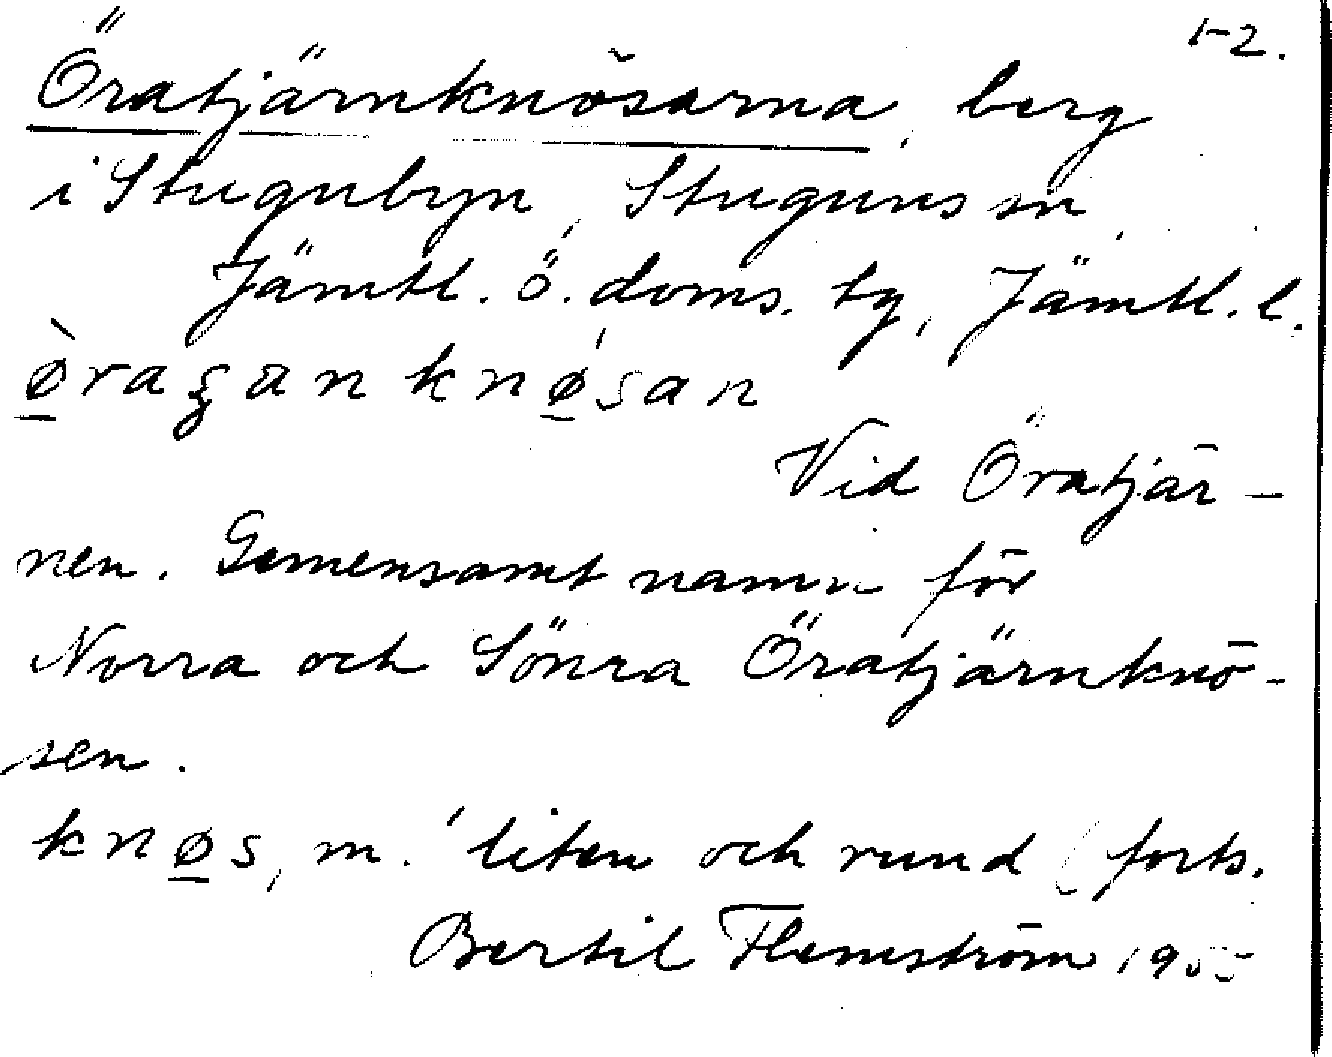 1-2.
Öratjärnknösarna, berg
i Stugubyn, Stuguns sn,
Jämtl. ö. doms. tg, Jämtl. l.
Vid Öratjär-
nen. Gemensamt namn för
Norra och Södra Öratjärnknö-
sen.
knø̲s, m. 'liten och rund (forts.
Bertil Flemström 1955